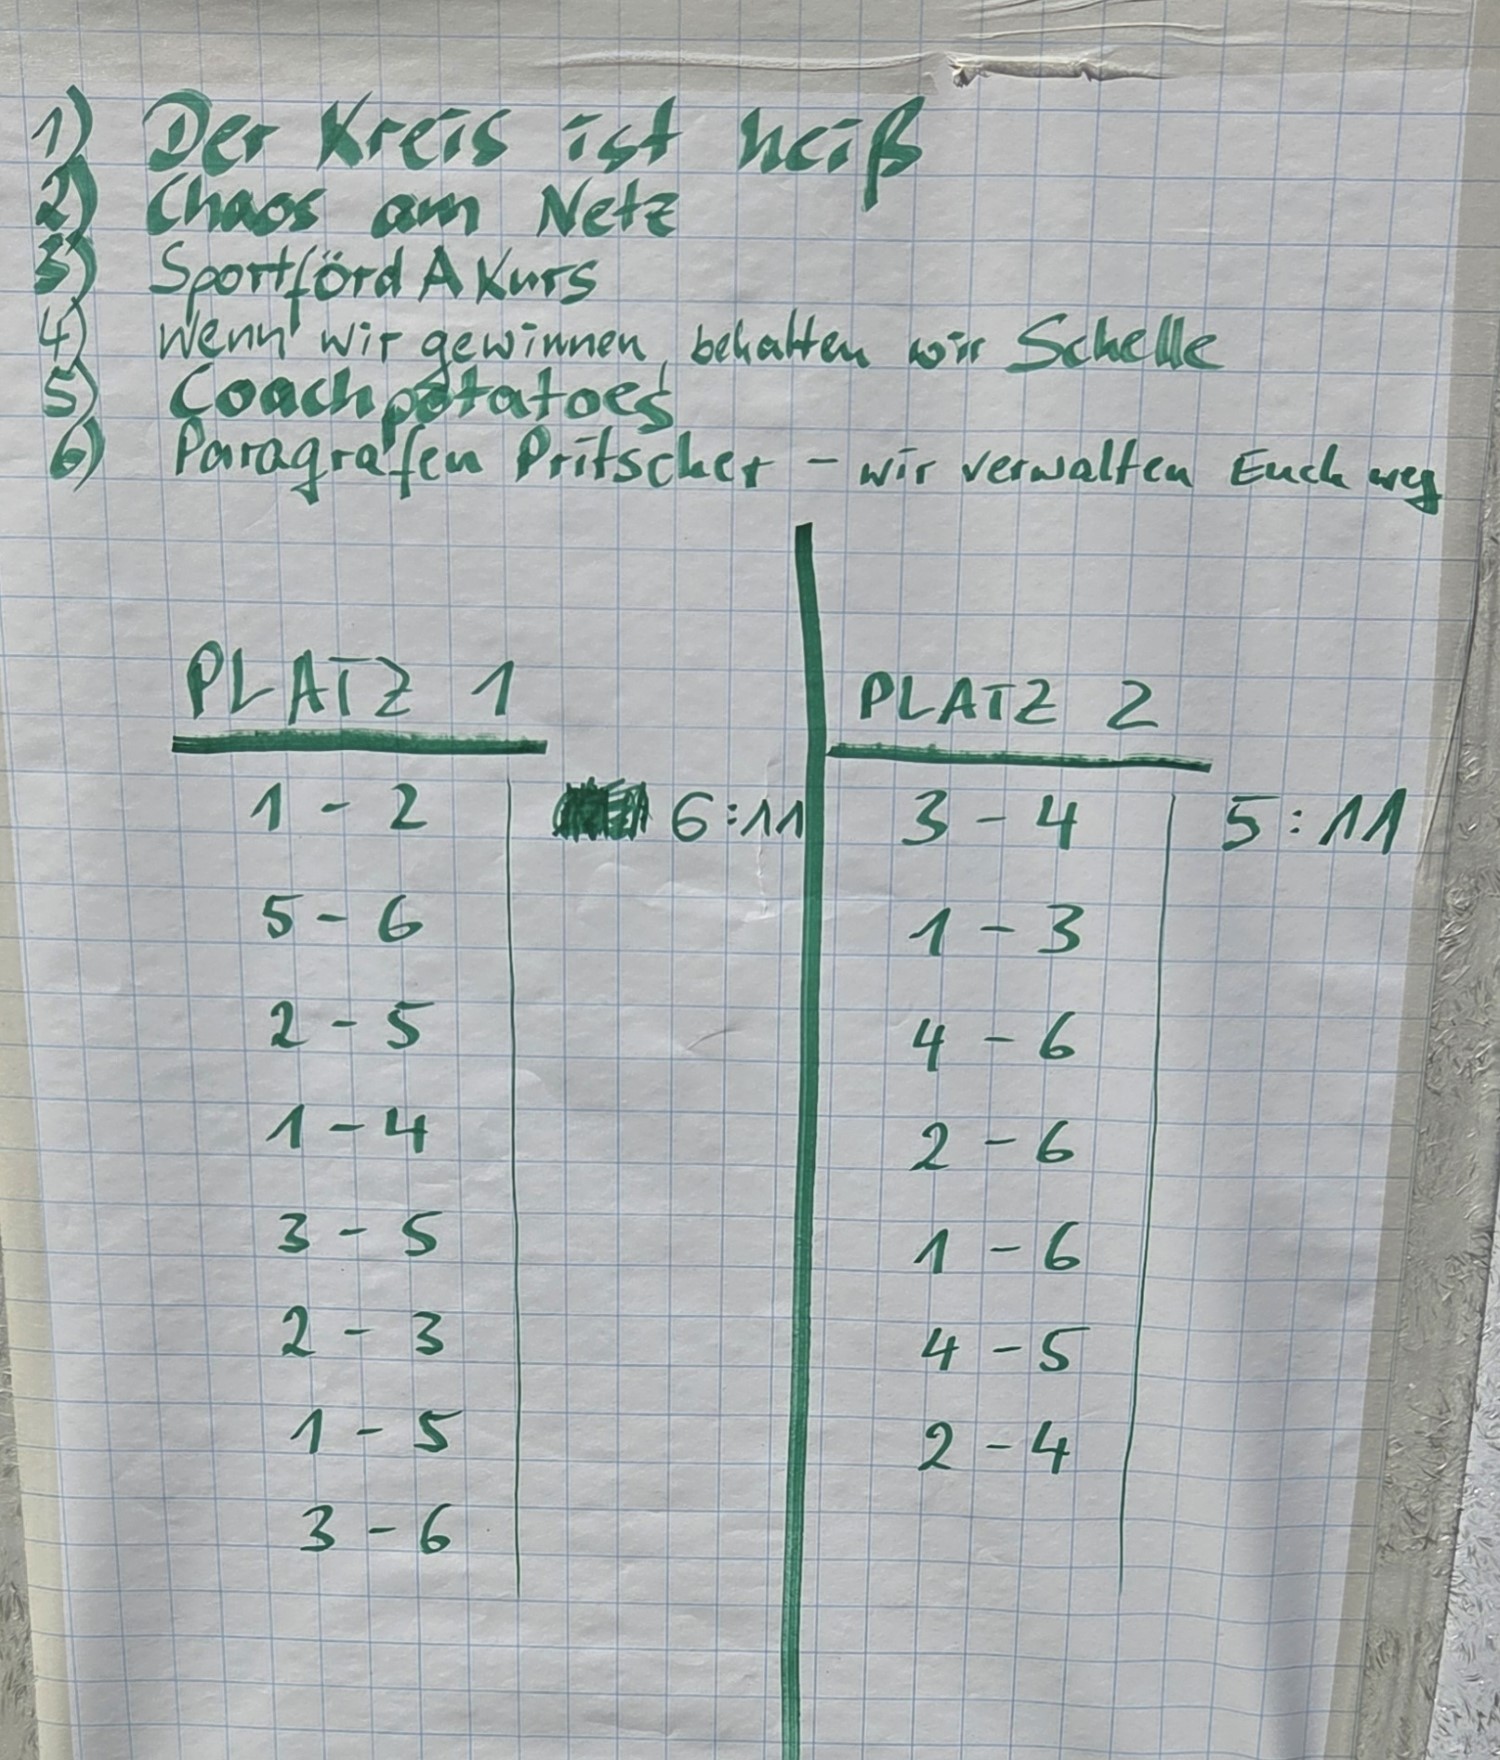 1) Der Kreis ist heiß
2) Chaos am Netz
3) Sportförd A Kurs
4) Wenn wir gewinnen, behalten wir Schelle
5) Coachpotatoes
6) Paragrafen Pritscher - wir verwalten Euch weg
PLATZ 1
1 - 2 6:11
5 - 6
2 - 5
1 - 4
3 - 5
2 - 3
1 - 5
3 - 6
PLATZ 2
3 - 4 5:11
1 - 3
4 - 6
2 - 6
1 - 6
4 - 5
2 - 4